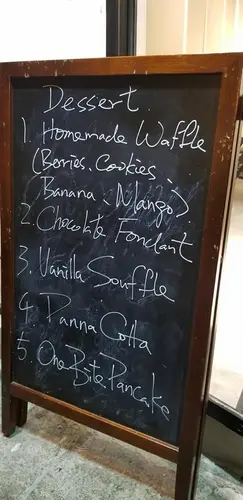 Dessert.
1. Homemade Waffle
(Berries, Cookies,
Banana, Mango)
2. Chocolate Fondant
3. Vanilla Souffle
4. Panna Cotta
5. One Bite Pancake